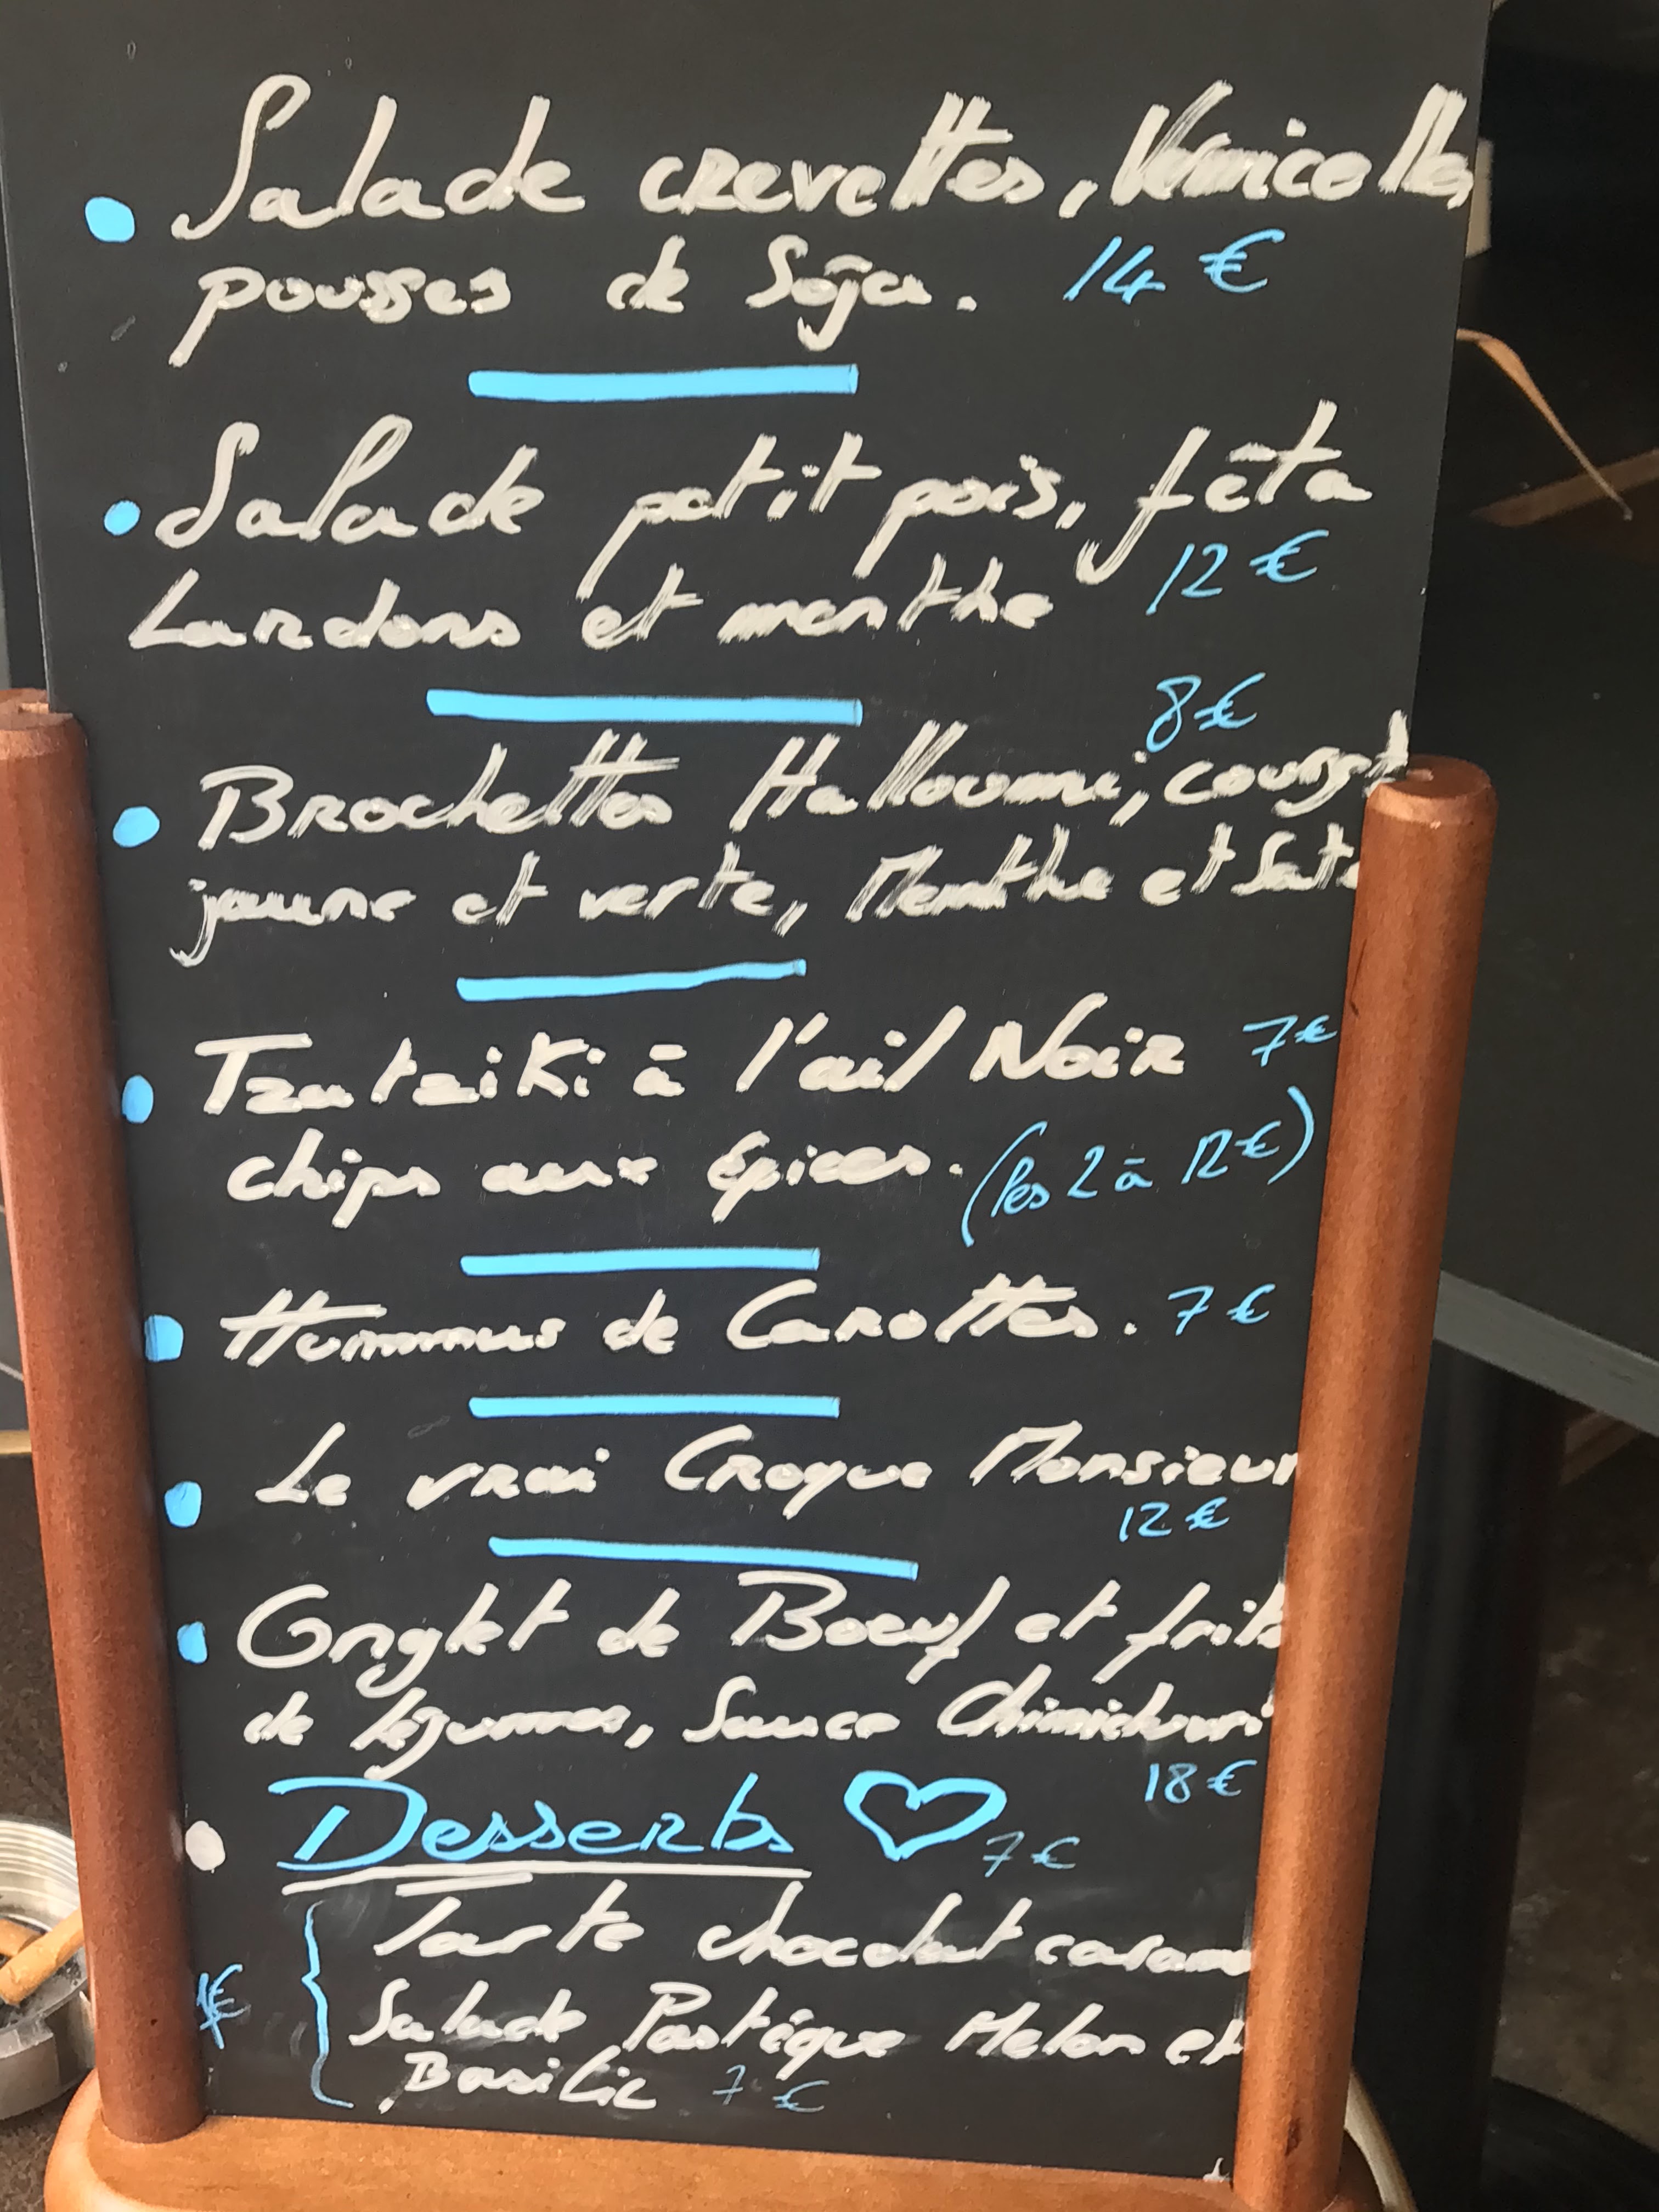 Salade crevettes, Vermicelles,
pousses de Soja. 14 €
Salade petit pois, fêta
12 €
Lardons et menthe
8 €
Brochettes Halloumi, courget
jaune et verte, Menthe et Saté
Tzatziki à l'ail Noir 7 €
chips aux épices. (les 2 à 12 €)
Hummus de Carottes. 7 €
Le vrai Croque Monsieur
12 €
Onglet de Boeuf et frites
de légumes, Sauce Chimichurri
18 €
Desserts 7 €
Tarte chocolat caram
Salade Pastèque Melon et
Basilic 7 €